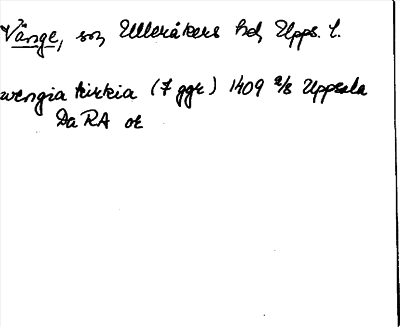 Vänge, sn, Ulleråkers hd, Upps. l.
wengia kirkia (7 ggr) 1409 2/8 Uppsala
Da RA or